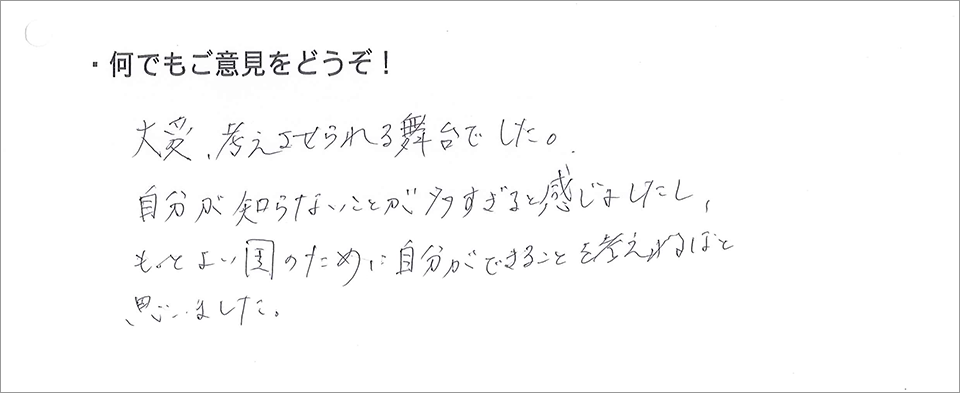 ・何でもご意見をどうぞ！
大変、考えさせられる舞台でした。
自分が知らないことが多すぎると感じましたし、
もっとよい国のために自分ができることを考えねばと
思いました。